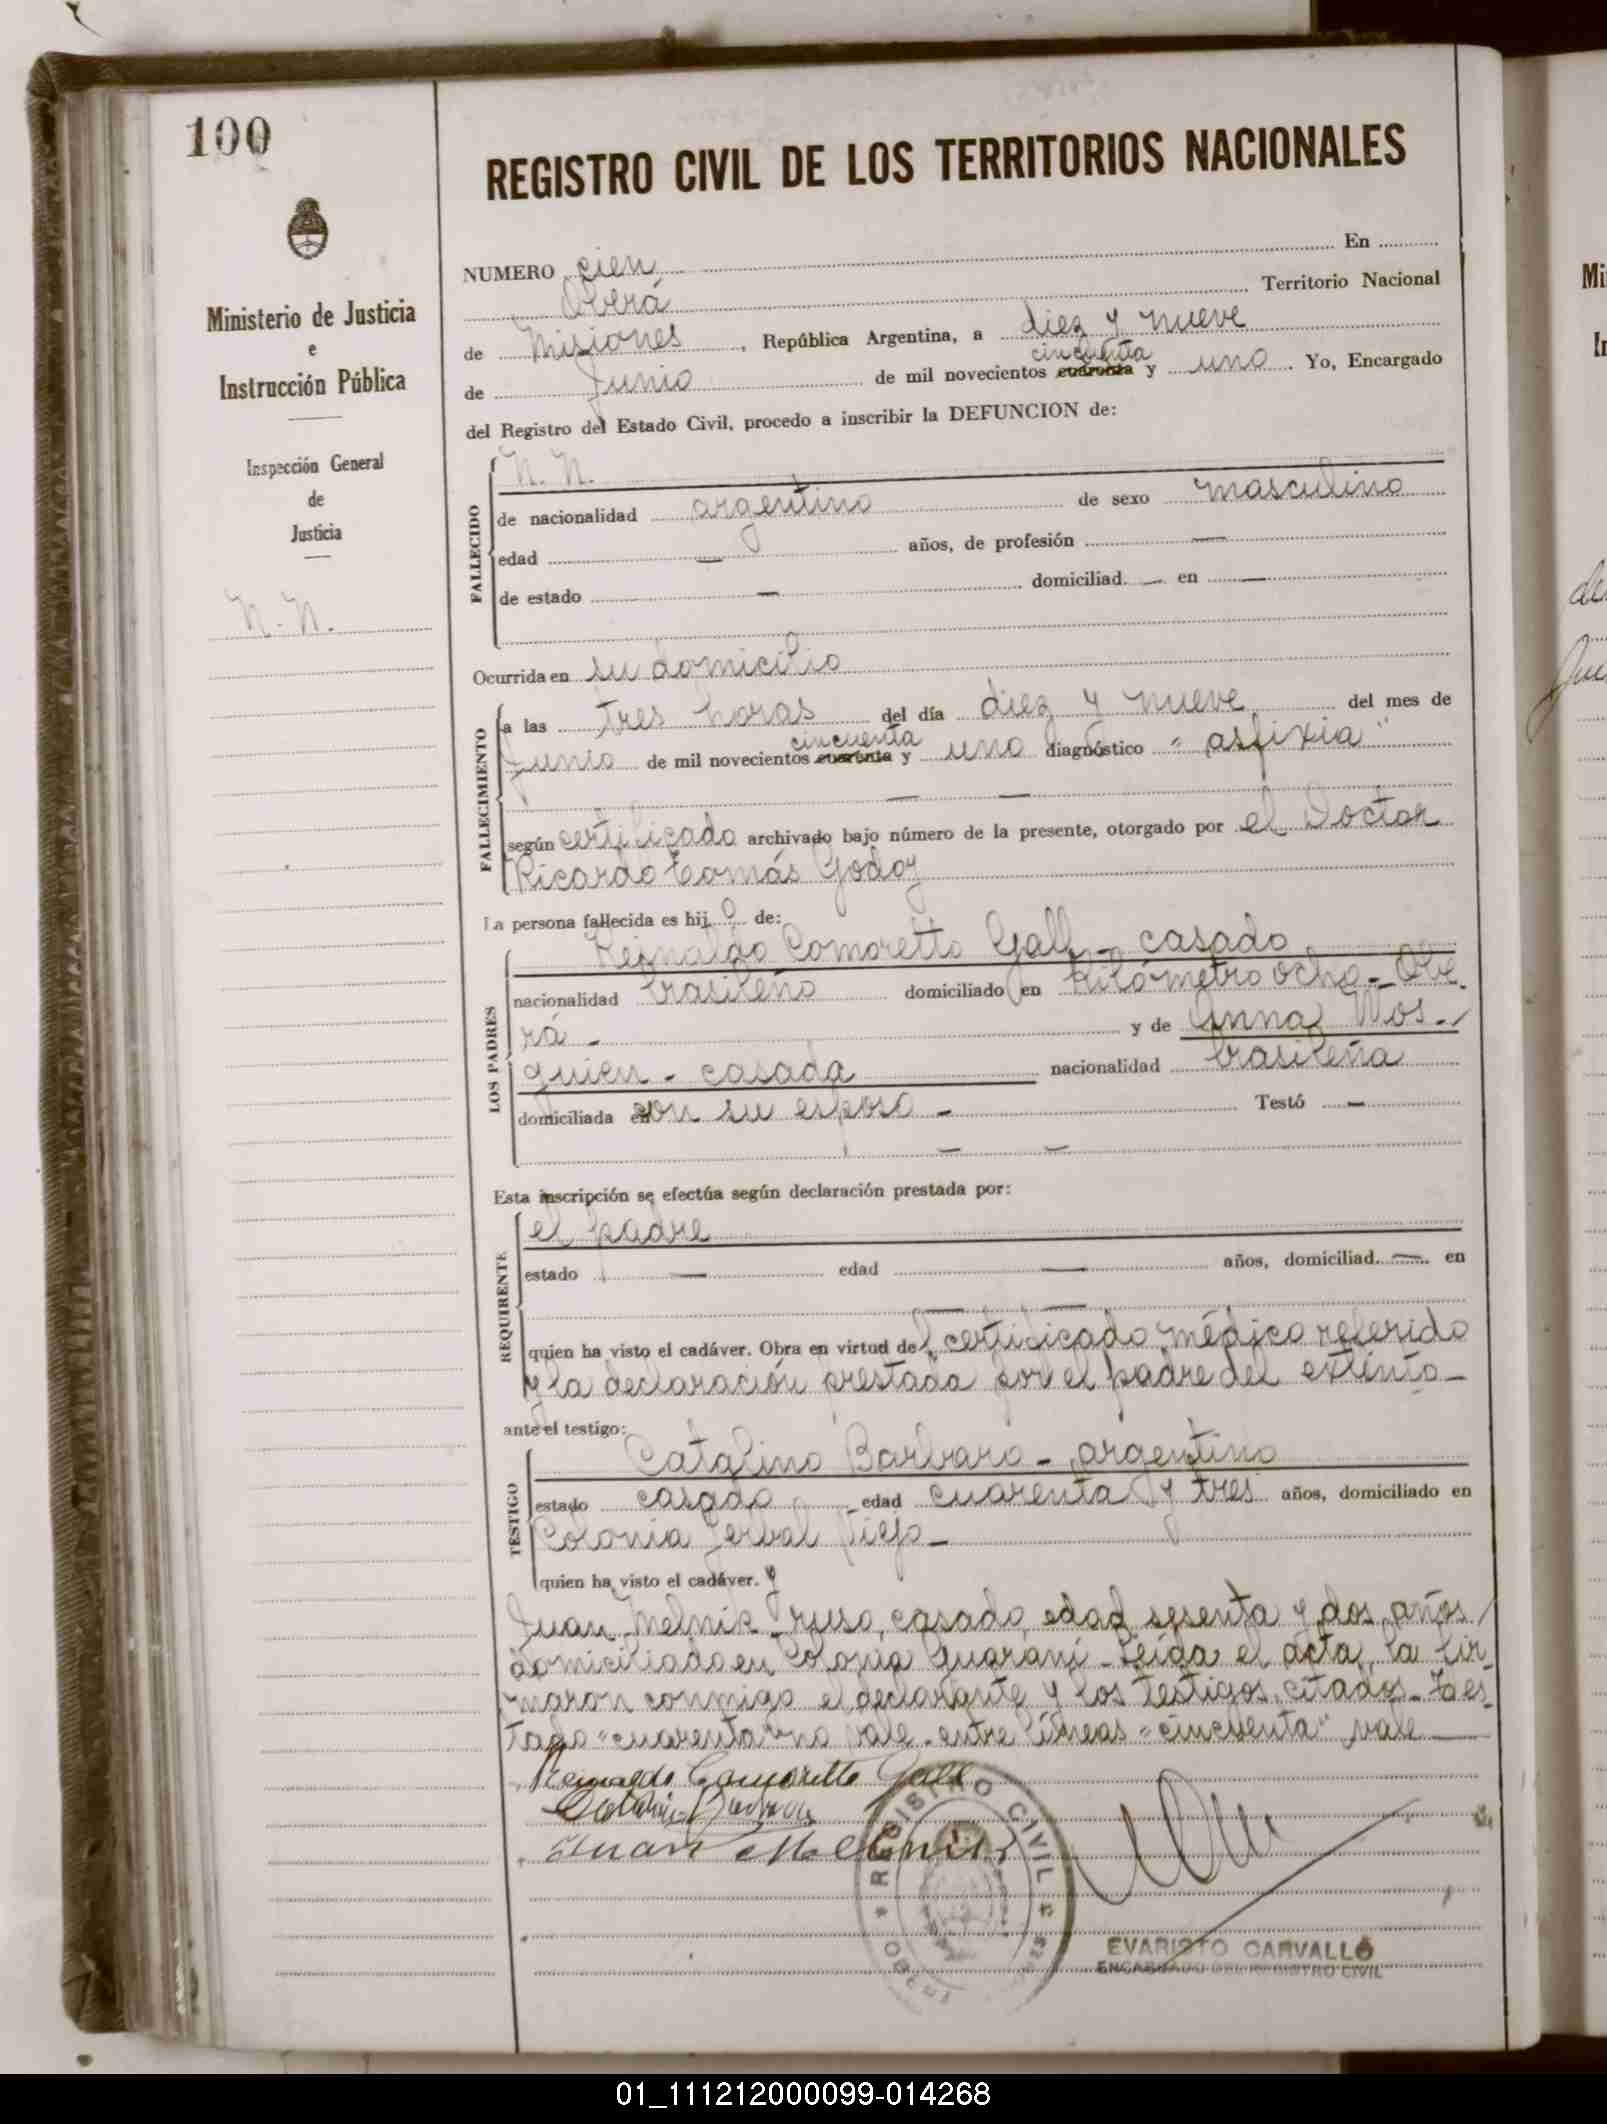 100
REGISTRO CIVIL DE LOS TERRITORIOS NACIONALES
Ministerio de Justicia
e
Instrucción Pública
Inspección General
de
Justicia
N. N.
NUMERO cien En
Oberá Territorio Nacional
de Misiones, República Argentina, a diez y nueve
cincuenta
de Junio de mil novecientos cuarenta y uno. Yo, Encargado
del Registro del Estado Civil, procedo a inscribir la DEFUNCION de:
FALLECIDO
N. N.
de nacionalidad argentino de sexo masculino
edad — años, de profesión —
de estado — domiciliad. — en —
Ocurrida en su domicilio
FALLECIMIENTO
a las tres horas del día diez y nueve del mes de
cincuenta
Junio de mil novecientos cuarenta y uno diagnóstico "asfixia"
— —
según certificado archivado bajo número de la presente, otorgado por el Doctor
Ricardo Tomás Godoy
La persona fallecida es hijo de:
LOS PADRES
Reinaldo Comoretto Gall - casado
nacionalidad brasileño domiciliado en Kilómetro ocho - Obe
rá - y de Anna Wos-
guien - casada nacionalidad brasileña
domiciliada en con su esposo - Testó —
— —
Esta inscripción se efectúa según declaración prestada por:
REQUIRENTE
el padre
estado — edad — años, domiciliad. — en
— —
quien ha visto el cadáver. Obra en virtud del certificado médico referido
y la declaración prestada por el padre del extinto -
ante el testigo:
TESTIGO
Catalino Barbaro - argentino
estado casado edad cuarenta y tres años, domiciliado en
Colonia Yerbal Viejo -
quien ha visto el cadáver. y
Juan Melnik - ruso, casado, edad sesenta y dos años
domiciliado en Colonia Guaraní - Leída el acta, la fir-
maron conmigo el declarante y los testigos citados - Tes-
tado "cuarenta" no vale - entre líneas "cincuenta" vale —
Reinaldo Comoretto Gall
Juan Melnik
REGISTRO CIVIL
EVARISTO CARVALLO
ENCARGADO DEL REGISTRO CIVIL
01_111212000099-014268